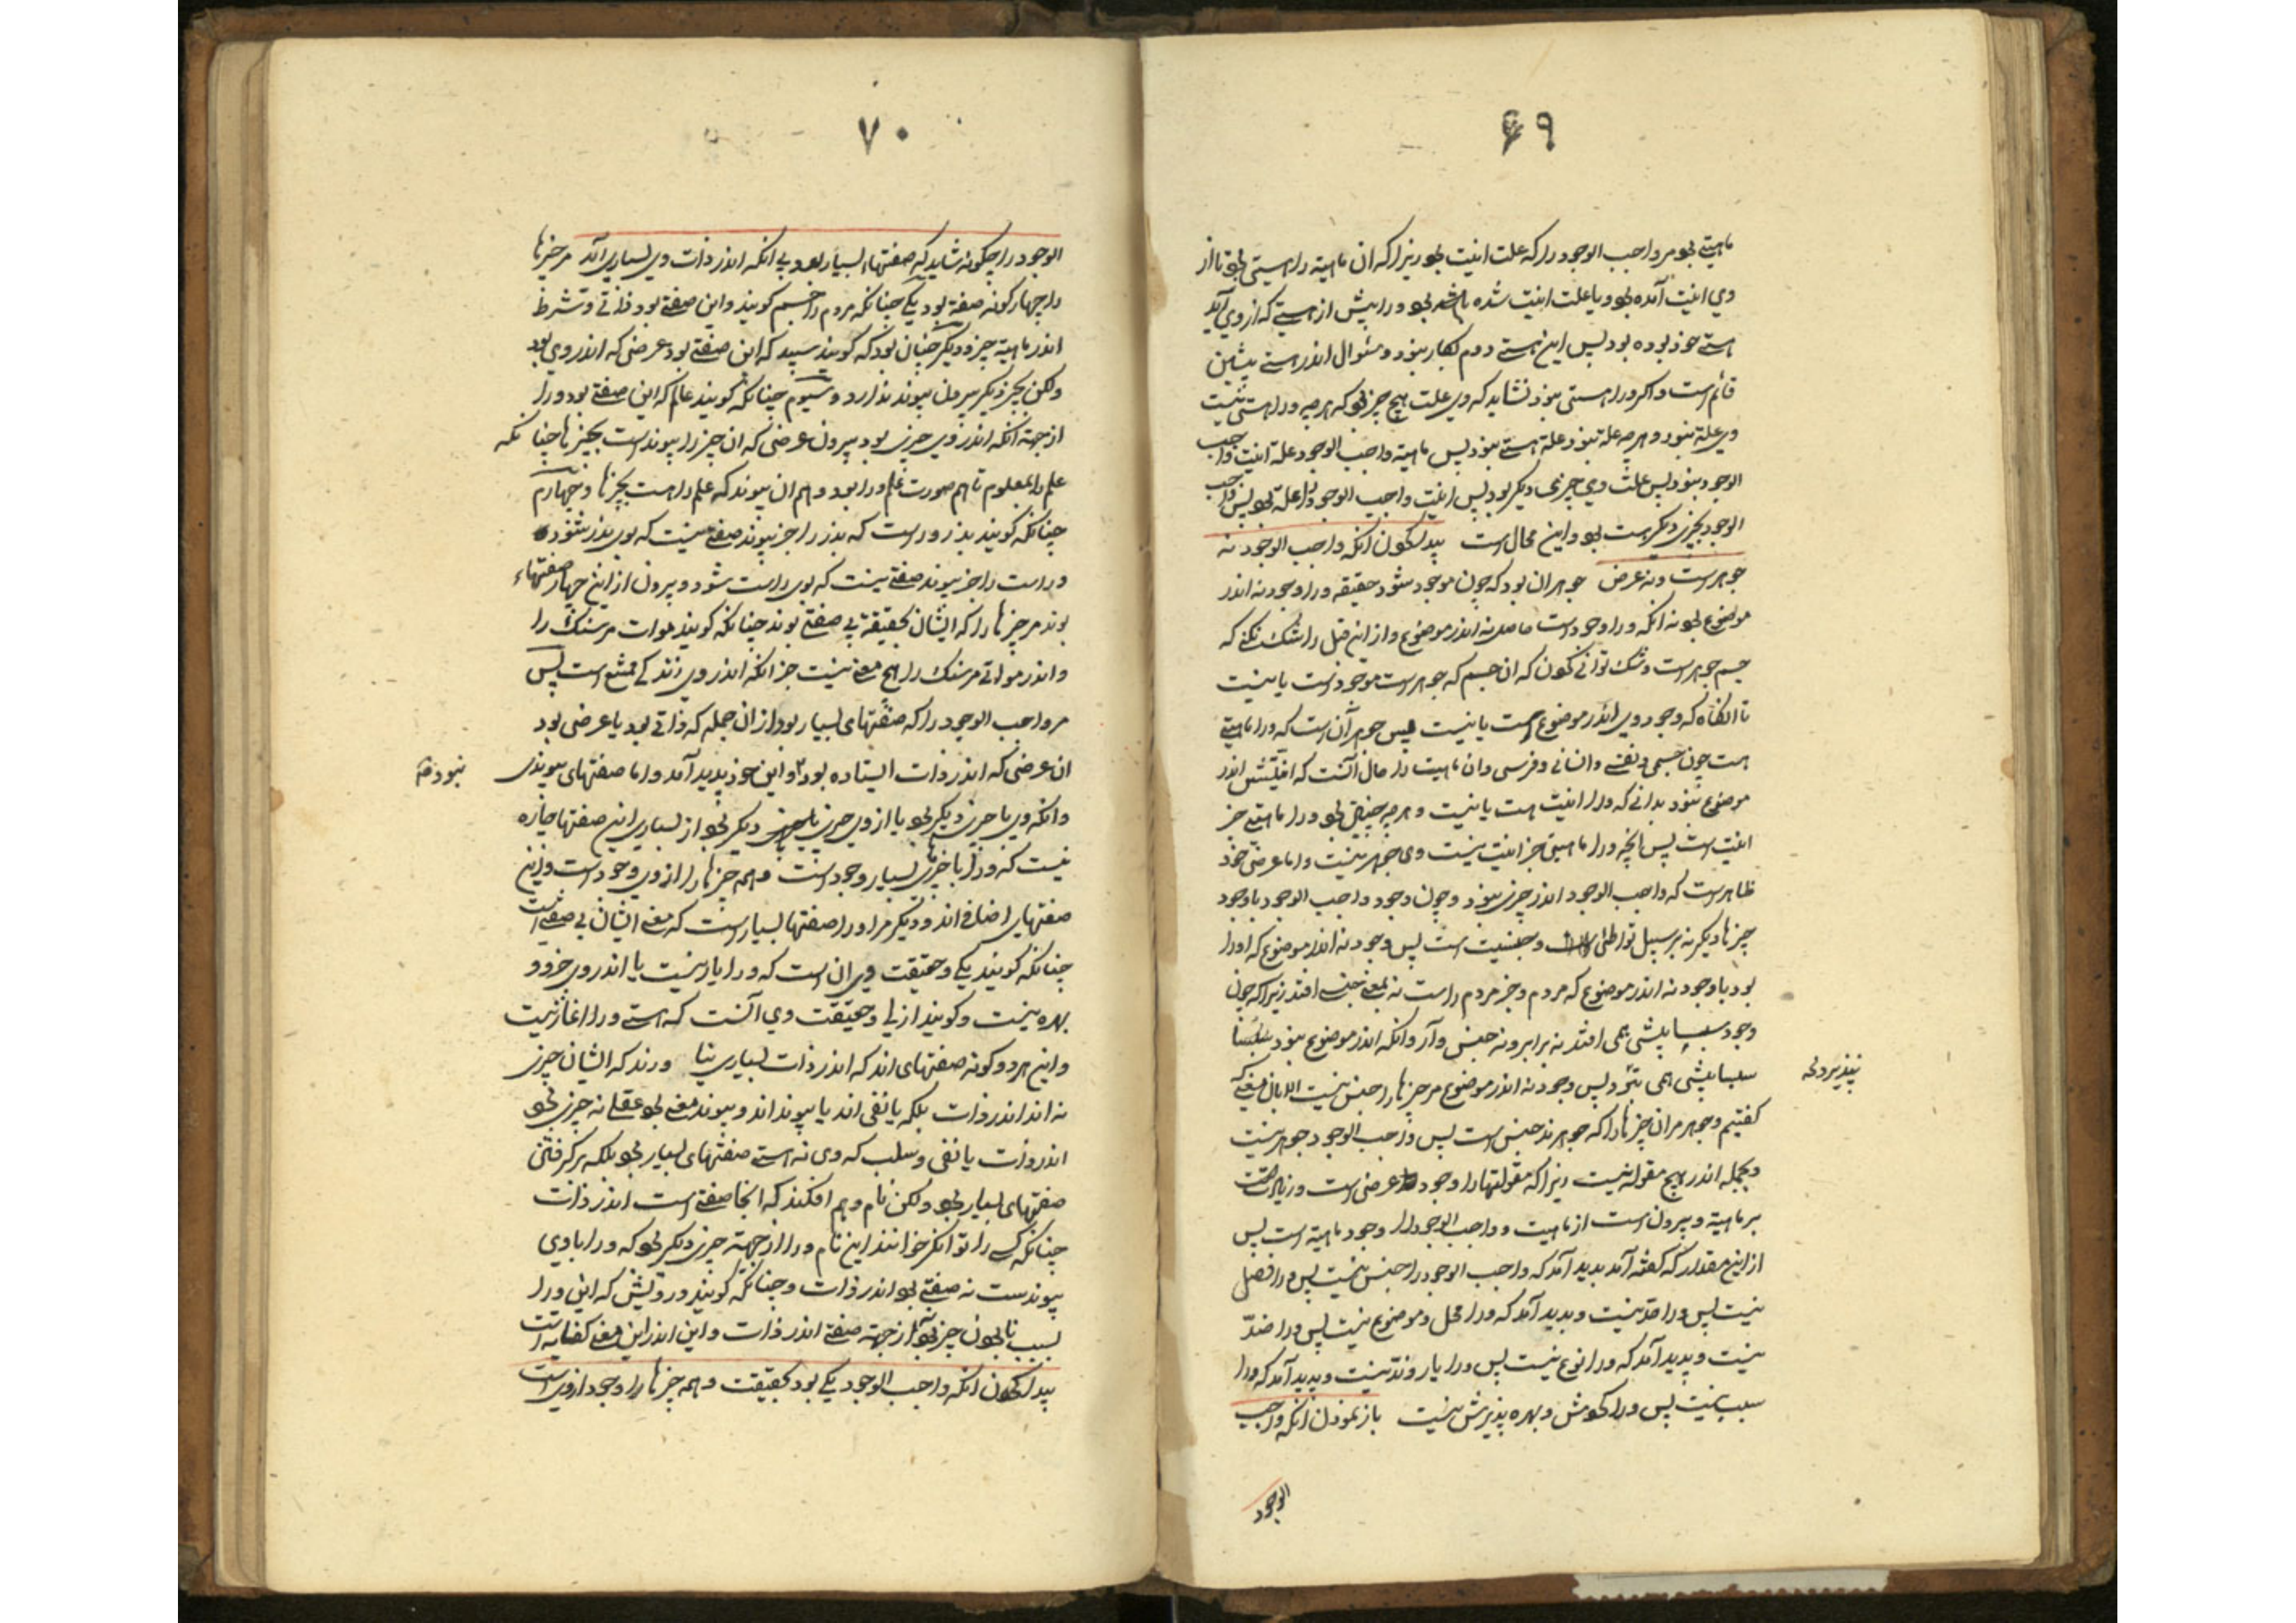 ۶۹
ماهیتی بود مر واجب الوجود را که علت انیت بود زیرا که ان ماهیة را هستی بود تا از
وی انیت آمده بود و یا علت انیت شده باشد بود ورا پیش از هستی که از وی آید
هستی خود بوده بود پس این هستی دوم بکار نبود و سئوال اندر هستی پیشین
قائم است و اگر ورا هستی نبود نشاید که وی علت هیچ چیز بود که هر چه ورا هستی نیست
وی علة نبود و هر چه علة نبود علة هستی نبود پس ماهیة واجب الوجود علة انیت واجب
الوجود نبود پس علت وی چیزی دیگر بود پس انیت واجب الوجود را علة بود پس واجب
الوجود بچیزی دیگر هست بود و این محال است پیدا کردن انکه واجب الوجود نه
جوهر است و نه عرض جوهر ان بود که چون موجود شود حقیقه ورا وجود نه اندر
موضوع بود نه انکه ورا وجود است حاصل نه اندر موضوع و از این قبل را شک نکنی که
جسم جوهر است و شک توانی کردن که ان جسم که جوهر است موجود است یا نیست
تا انگاه که وجود وی اندر موضوع است یا نیست پس جوهر آن است که ورا ماهیتی
هست چون جسمی و نفسی و انسانی و فرسی و ان ماهیت را حال آنست که انیتش اندر
موضوع نبود بدانی که ورا انیت هست یا نیست و هر چه چنین بود ورا ماهیتی جز
انیت است پس انچه ورا ماهیتی جز انیت نیست وی جوهر نیست و اما عرضی خود
ظاهر است که واجب الوجود اندر چیزی نبود و چون وجود واجب الوجود با وجود
چیزها دیگر نه بر سبیل تواطئی است و جنسیت است پس وجود نه اندر موضوع که اورا
بود با وجود نه اندر موضوع که مردم و جز مردم راست نه بمعنی جنسی افتد زیرا که چون
وجود سپسا پیشی همی افتد نه برابر و نه جنس وار و انکه اندر موضوع نبود سپسا
سپسا پیشی همی نبود پس وجود نه اندر موضوع مر چیزها را جنس نیست الا بان معنی که
نپذیرد لحہ
گفتیم و جوهر مر ان چیزها را که جوهرند جنس است پس واجب الوجود جوهر نیست
و بجمله اندر هیچ مقوله نیست زیرا که مقولتها را وجود عرضی است و زیادت
بر ماهیة و بیرون است از ماهیت و واجب الوجود را وجود ماهیة است پس
از این مقدار که گفته آمد پدید آمد که واجب الوجود را جنس نیست پس ورا فصل
نیست پس ورا حد نیست و پدید آمد که ورا محل و موضوع نیست پس ورا ضد
نیست و پدید آمد که ورا نوع نیست پس ورا یار و ند نیست و پدید آمد که ورا
سبب نیست پس ورا گردش و بهره پذیرش نیست باز نمودن انکه واجب
الوجود
۷۰
الوجود را چگونه شاید که صفتهاء بسیار بود بی انکه اندر ذات وی بسیاری آید مر چیزها
را چهار گونه صفة بود یکی چنانکه مردم را جسم گویند و این صفتی بود ذاتی و شرط
اندر ماهیة چیز و دیگر چنان بود که گویند سپید که این صفتی بود عرضی که اندر وی بود
ولکن بچیز دیگر بیرون پیوند ندارد و سیوم چنانکه گویند عالم که این صفتی بود ورا
از جهة انکه اندر وی چیزی بود بیرون عرضی که ان چیز را پیوند است بچیزها چنانکه
علم را بمعلوم تا هم صورت علم ورا بود و هم ان پیوند که علم را هست بچیزها و چهارم
چنانکه گویند پدر و راست که پدر را جز پیوند صفتی نیست که بوی پدر شود
و راست را جز پیوند صفتی نیست که بوی راست شود و بیرون از این چهار صفتهاء
بوند مر چیزها را که ایشان بحقیقة بی صفتی بوند چنانکه گویند موات مر سنگ را
و اندر مواتی مر سنگ را هیچ معنی نیست جز انکه اندر وی زندگی ممتنع است پس
مر واجب الوجود را که صفتهای بسیار بود از ان جمله که ذاتی بود یا عرضی بود
ان عرضی که اندر ذات ایستاده بود و این خود پدید آمد و اما صفتهای پیوندی
نبود
و انکه وی با چیزی دیگر بود یا از وی چیزی دیگر بود از بسیاری این صفتها چاره
نیست که ورا با چیزهای بسیار وجود است و همه چیزها را از وی وجود است و این
صفتهای اضافی اند و دیگر مر ورا صفتها بسیار است که معنی ایشان بی صفتی است
چنانکه گویند یکی و حقیقت وی ان است که ورا یار نیست یا اندر وی جزو و
بهره نیست و گویند ازلی و حقیقت وی آنست که هستی ورا اغاز نیست
و این هر دو گونه صفتهای اند که اندر ذات بسیاری نیا ورند که ایشان چیزی
نه اند اندر ذات بلکه یا نفی اند یا پیوند اند و پیوند معنی بود عقلی نه چیزی بود
اندر ذات یا نفی و سلب که وی نه هستی صفتهای بسیار بود بلکه برگرفتن
صفتهای بسیار بود ولکن نام وهم افکند که انجا صفتی است اندر ذات
چنانکه کسی را توانگر خوانند این نام ورا از جهة چیزی دیگر بود که ورا با وی
پیوندست نه صفتی بود اندر ذات و چنانکه گویند درویش که این ورا
بسبب نابودن چیز بود نه از جهة صفتی اندر ذات و این اندر این معنی کفایه است
پیدا کردن انکه واجب الوجود یکی بود بحقیقت و همه چیزها را وجود از وی است